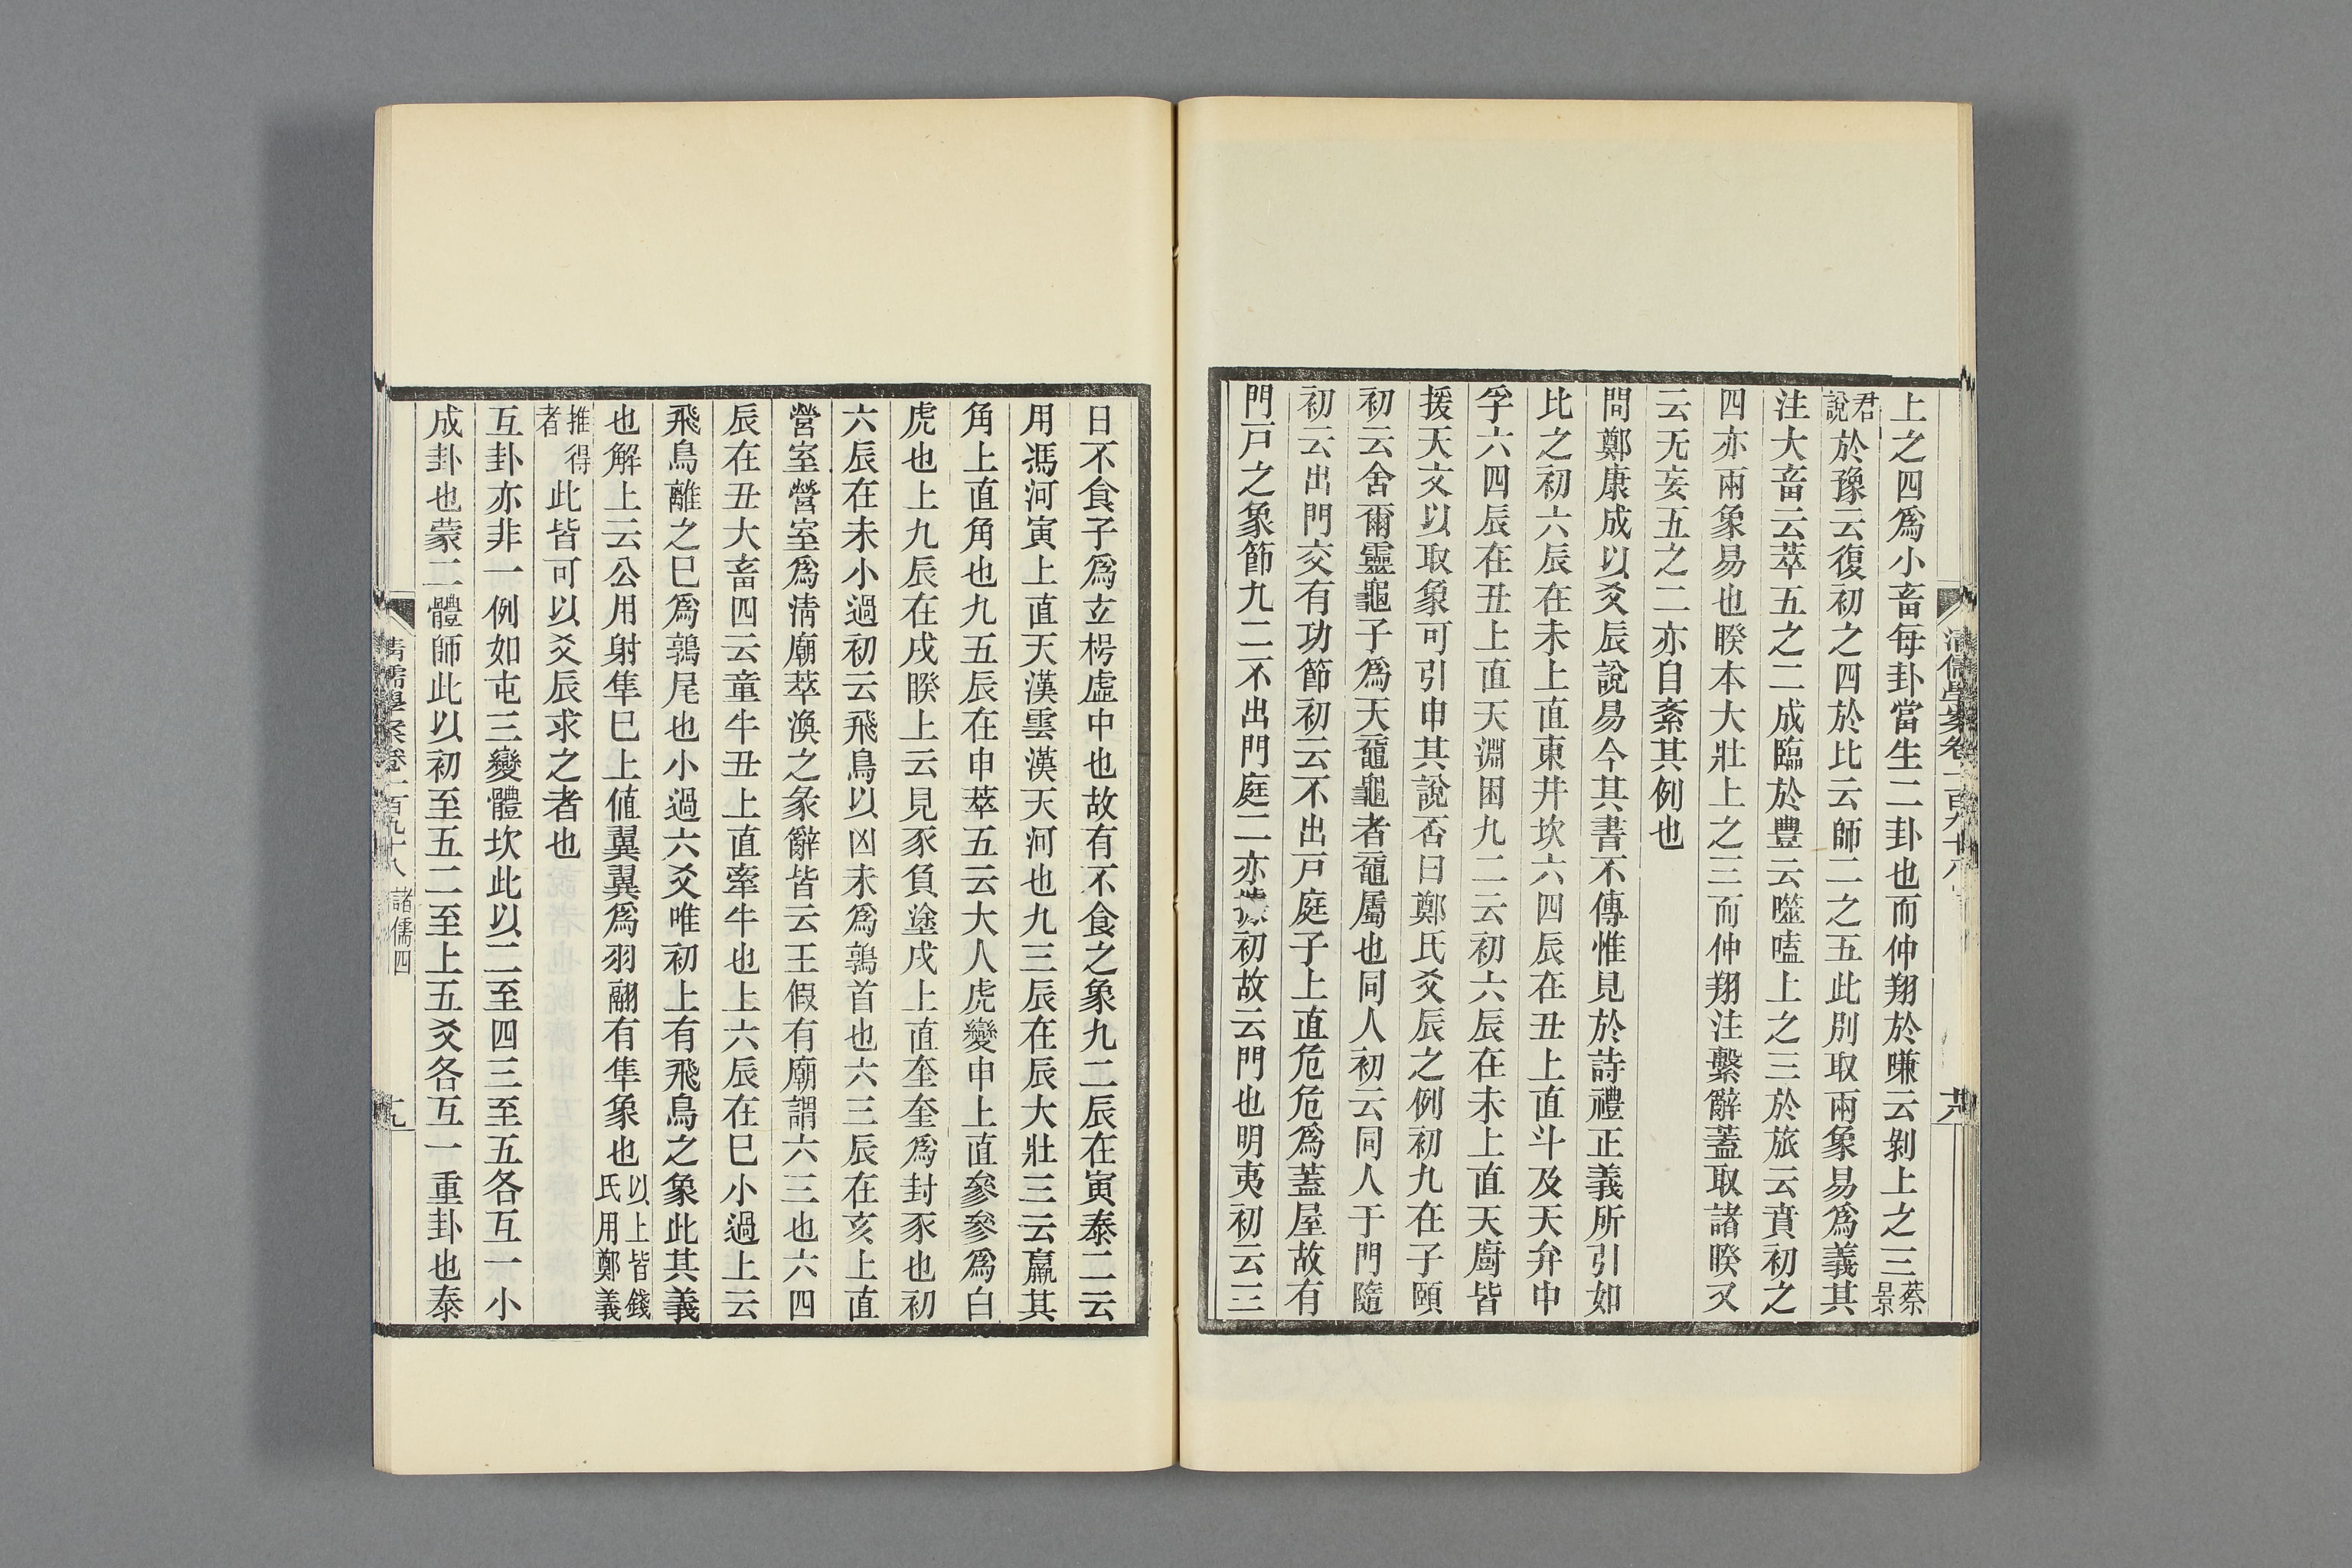 上之四爲小畜每卦當生二卦也而仲翔於嗛云剝上之三蔡景
君說於豫云復初之四於比云師二之五此別取兩象易爲義其
注大畜云萃五之二成臨於豐云噬嗑上之三於旅云賁初之
四亦兩象易也睽本大壯上之三而仲翔注繫辭蓋取諸睽又
云无妄五之二亦自紊其例也
問鄭康成以爻辰說易今其書不傳惟見於詩禮正義所引如
比之初六辰在未上直東井坎六四辰在丑上直斗及天弁中
孚六四辰在丑上直天淵困九二云初六辰在未上直天廚皆
援天文以取象可引申其說否曰鄭氏爻辰之例初九在子頤
初云舍爾靈龜子爲天黿龜者黿屬也同人初云同人于門隨
初云出門交有功節初云不出戸庭子上直危危爲蓋屋故有
門戸之象節九二不出門庭二亦據初故云門也明夷初云三
日不食子爲玄枵虛中也故有不食之象九二辰在寅泰二云
用馮河寅上直天漢雲漢天河也九三辰在辰大壯三云羸其
角上直角也九五辰在申萃五云大人虎變申上直參參爲白
虎也上九辰在戌睽上云見豕負塗戌上直奎奎爲封豕也初
六辰在未小過初云飛鳥以凶未爲鶉首也六三辰在亥上直
營室營室爲淸廟萃渙之彖辭皆云王假有廟謂六三也六四
辰在丑大畜四云童牛丑上直牽牛也上六辰在巳小過上云
飛鳥離之巳爲鶉尾也小過六爻唯初上有飛鳥之象此其義
也解上云公用射隼巳上値翼翼爲羽翮有隼象也以上皆錢氏用鄭義
推得者此皆可以爻辰求之者也
互卦亦非一例如屯三變體坎此以二至四三至五各互一小
成卦也蒙二體師此以初至五二至上五爻各互一重卦也泰
清儒學案卷一百九十八 諸儒四
十九